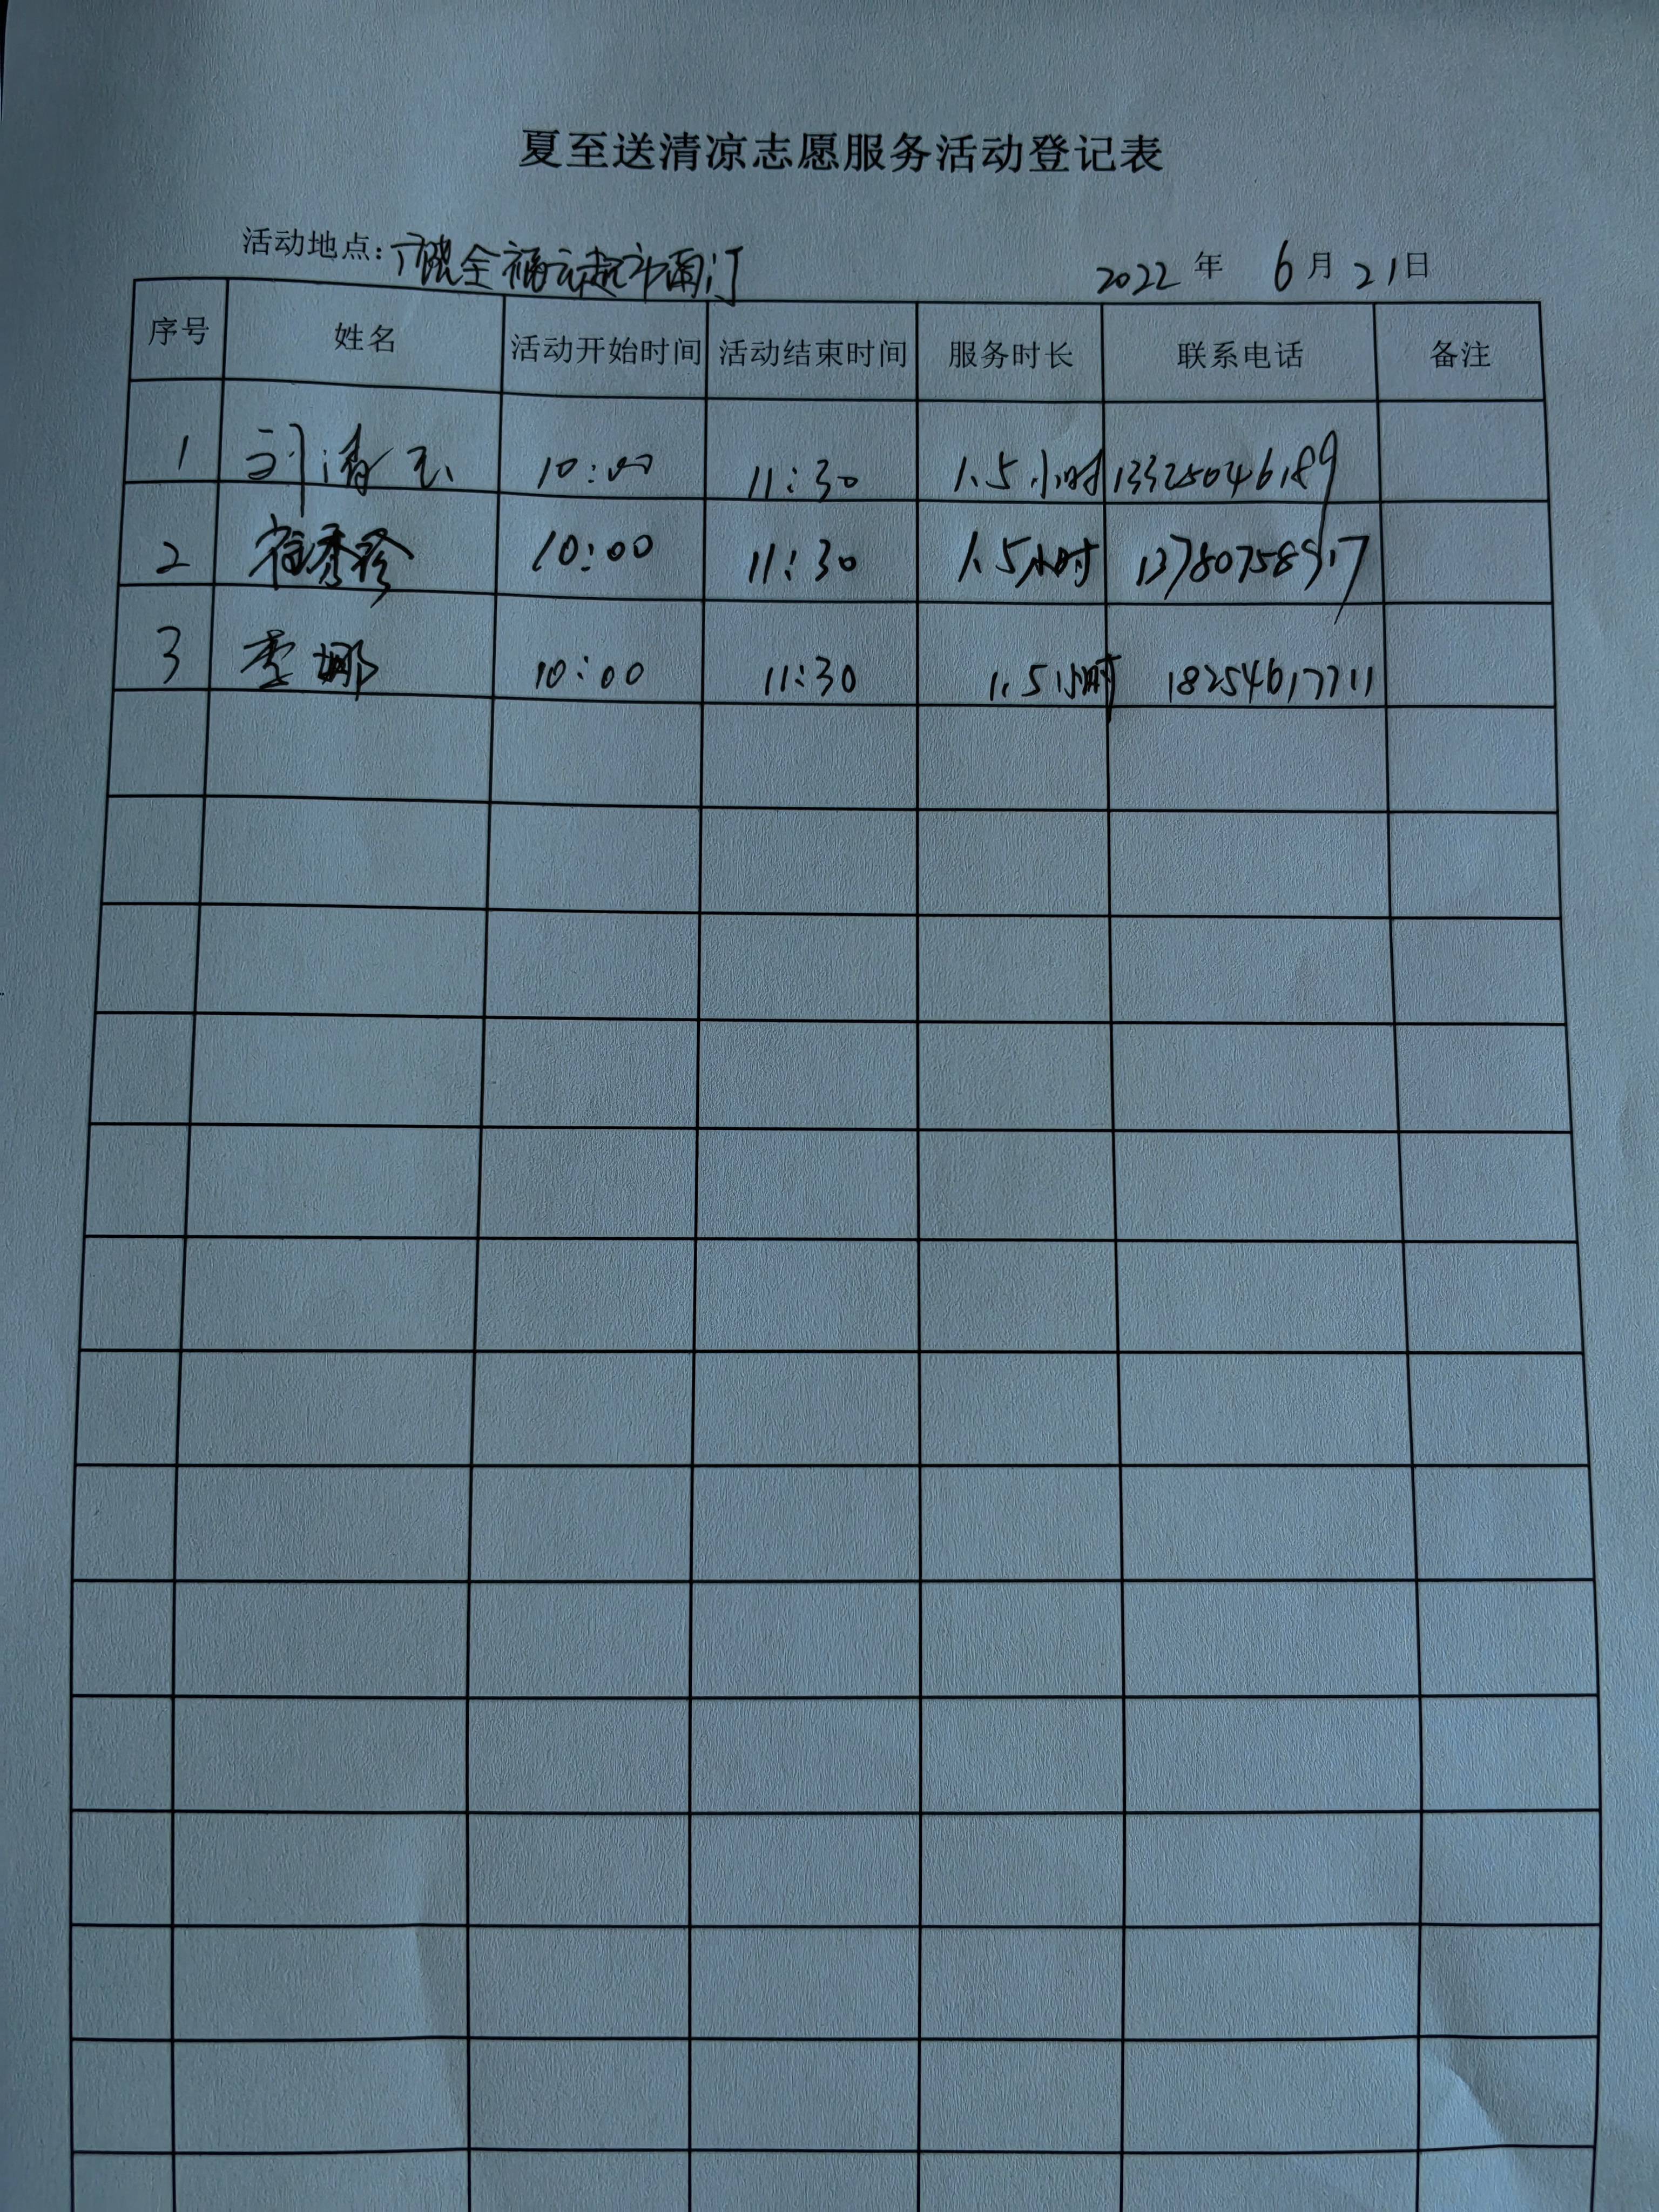 夏至送清凉志愿服务活动登记表
活动地点: 广饶全福元超市西门 2022 年 6 月 21 日
序号 姓名 活动开始时间 活动结束时间 服务时长 联系电话 备注
1 刘清 10:00 11:30 1.5小时 13325046189
2 崔秀珍 10:00 11:30 1.5小时
3 李娜 10:00 11:30 1.5小时 18254617711